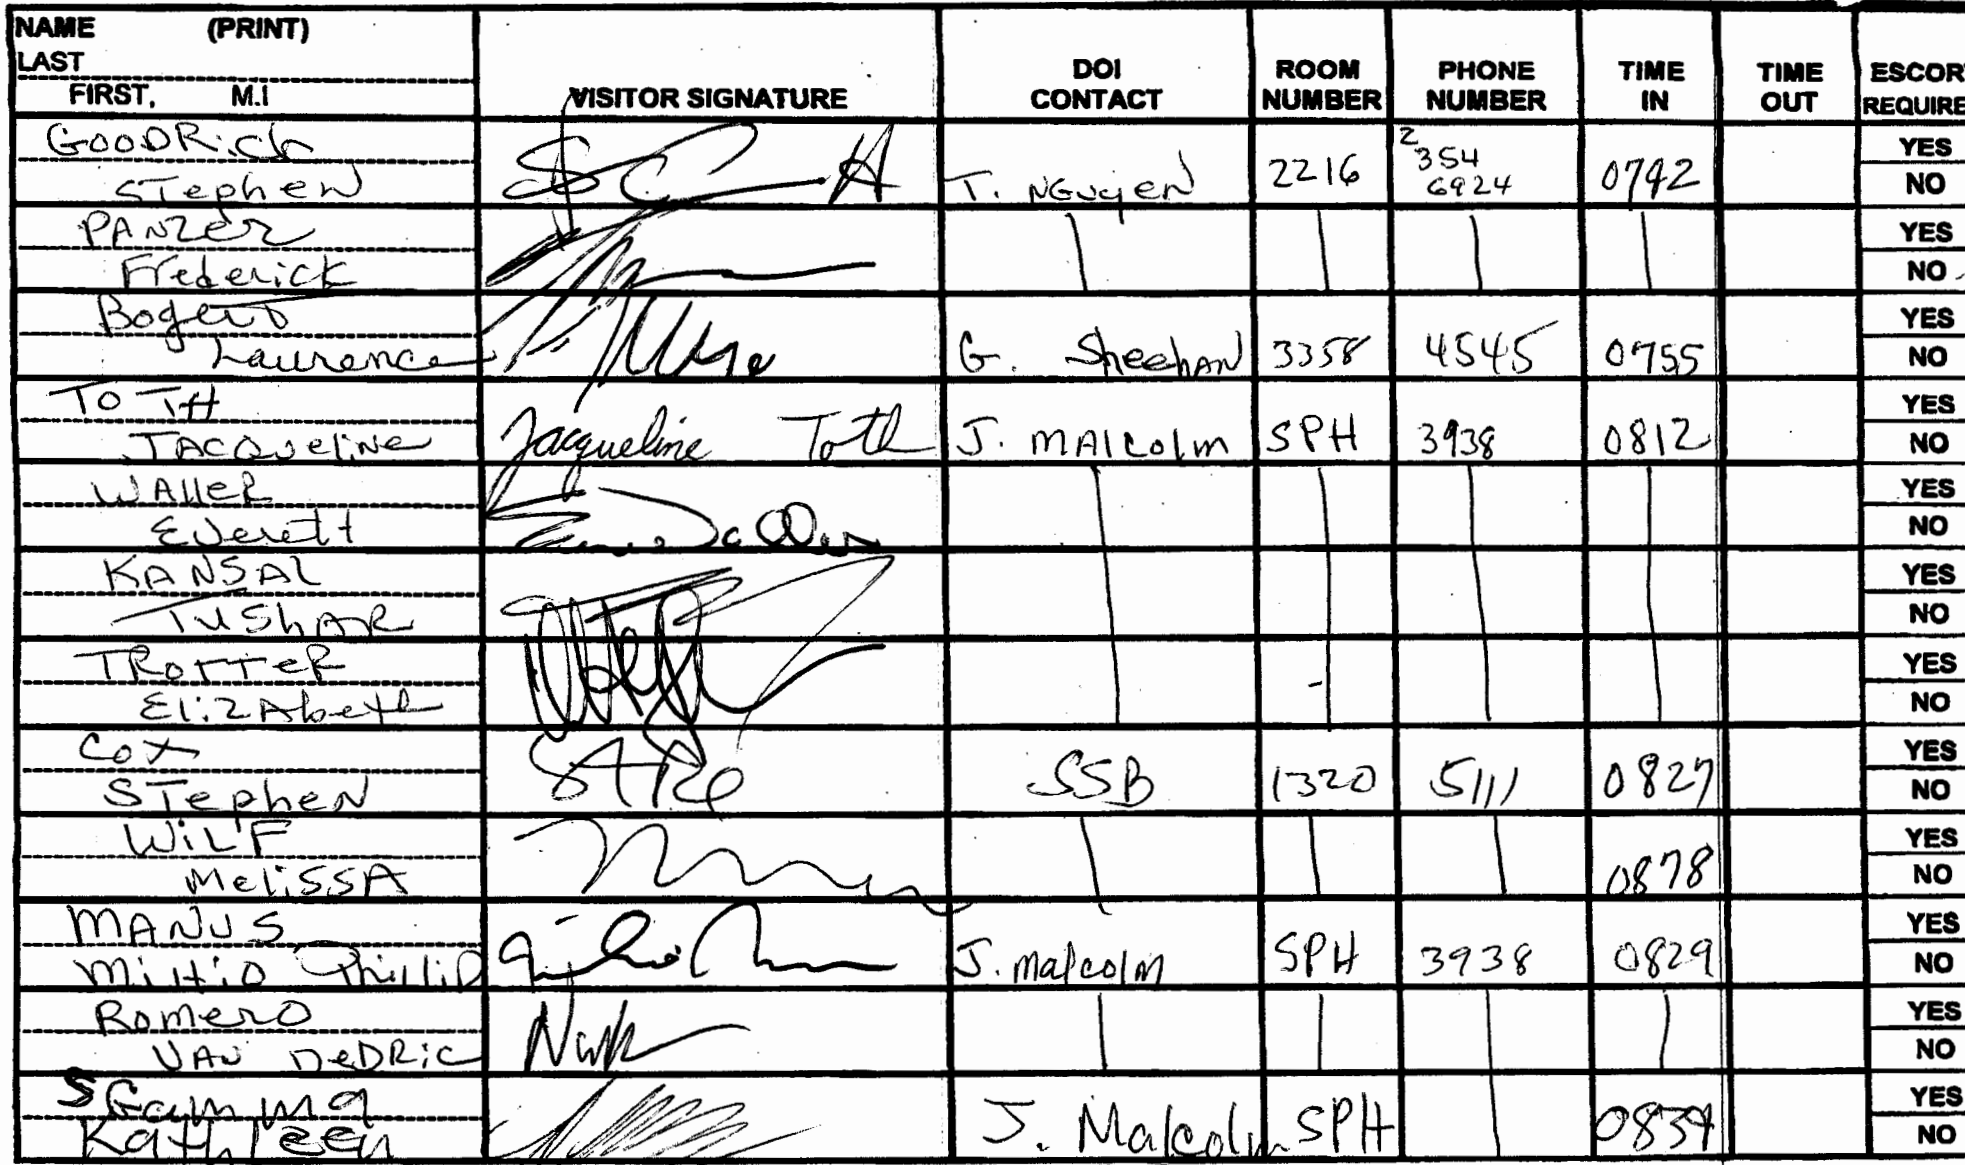 NAME (PRINT)
LAST
FIRST, M.I
VISITOR SIGNATURE
DOI CONTACT
ROOM NUMBER
PHONE NUMBER
TIME IN
TIME OUT
ESCORT REQUIRE
GOODRich
STephen
T. NGuyen 2216 2 354 6924 0742
YES
NO
PANZER
Frederick
YES
NO
Bogert
Laurence
G. SheehAN 3358 4545 0755
YES
NO
TOTH
JACQueliNe
Jacqueline Toth
J. MAlcolm SPH 3938 0812
YES
NO
WALLER
Everett
YES
NO
KANSAL
TUShAR
YES
NO
TROTTER
EliZAbeth
YES
NO
Cox
STepheN
SSB 1320 5111 0827
YES
NO
WiLF
MeliSSA
0878
YES
NO
MANUS
Phillip
J. malcolm SPH 3938 0829
YES
NO
Romero
VAN DeDRic
YES
NO
SGamma
Kathleen
J. Malcolm SPH
YES
NO